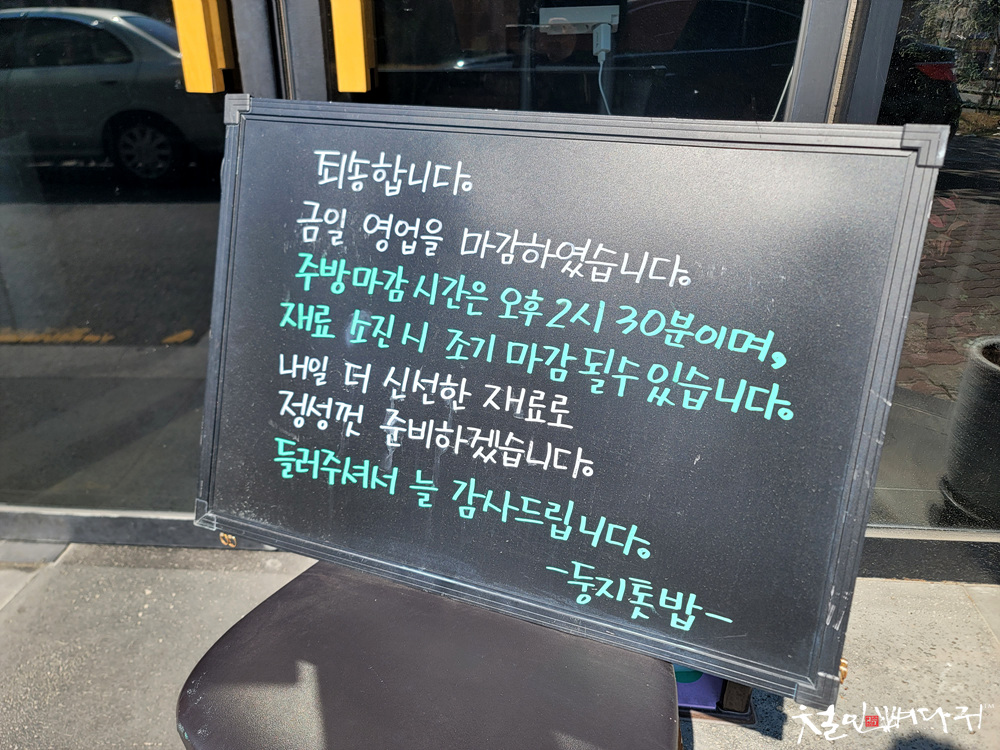 죄송합니다.
금일 영업을 마감하였습니다.
주방마감 시간은 오후 2시 30분이며,
재료 소진시 조기 마감 될수 있습니다.
내일 더 신선한 재료로
정성껏 준비하겠습니다.
들러주셔서 늘 감사드립니다.
-둥지톳밥-
철민뼈다귀